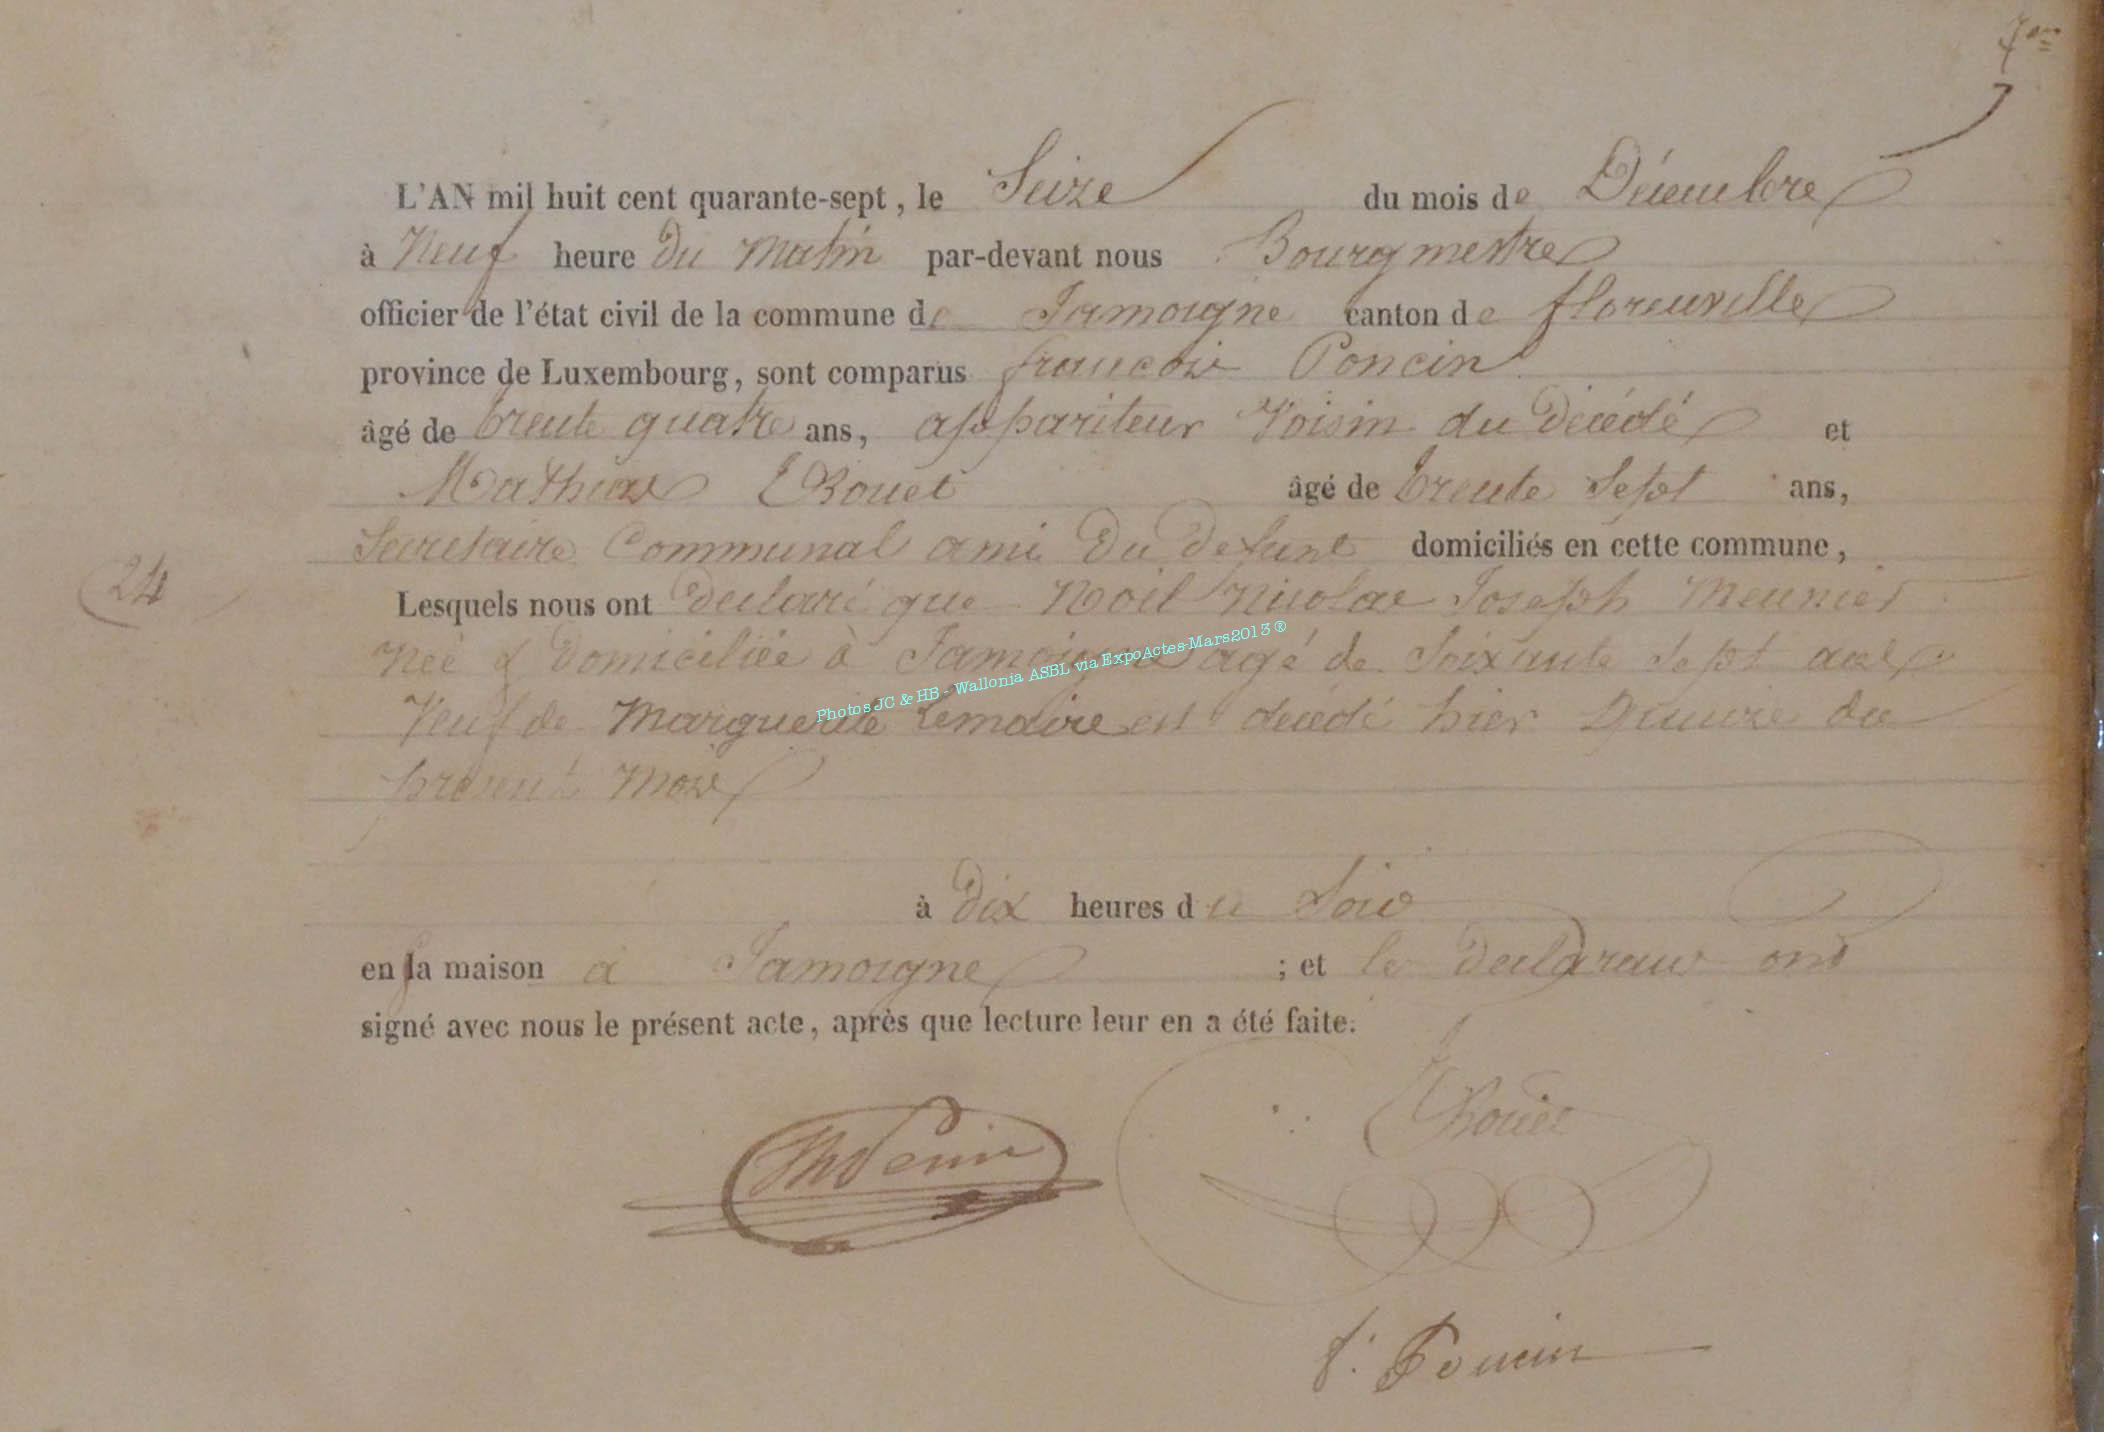 7em
L'AN mil huit cent quarante-sept, le Seize du mois de Décembre
à Neuf heure du Matin par-devant nous Bourgmestre
officier de l'état civil de la commune de Jamoigne canton de florenville
province de Luxembourg, sont comparus francois Poncin
âgé de trente quatre ans, appariteur Voisin du Décédé et
Mathias Rouet âgé de trente Sept ans,
Secretaire Communal ami Du Defunt domiciliés en cette commune,
24
Lesquels nous ont Declaré que Noël Nicolas Joseph Meunier
Née & Domiciliée à Jamoigne agé de Soixante Sept ans
Veuf de Marguerite Lemaire est décédé hier Quinze du
présent Mois
Photos JC & HB - Wallonia ASBL via ExpoActes-Mars2013 ®
à Dix heures du Soir
en sa maison à Jamoigne ; et le Declarans ont
signé avec nous le présent acte, après que lecture leur en a été faite.
Rouet
f. Poncin